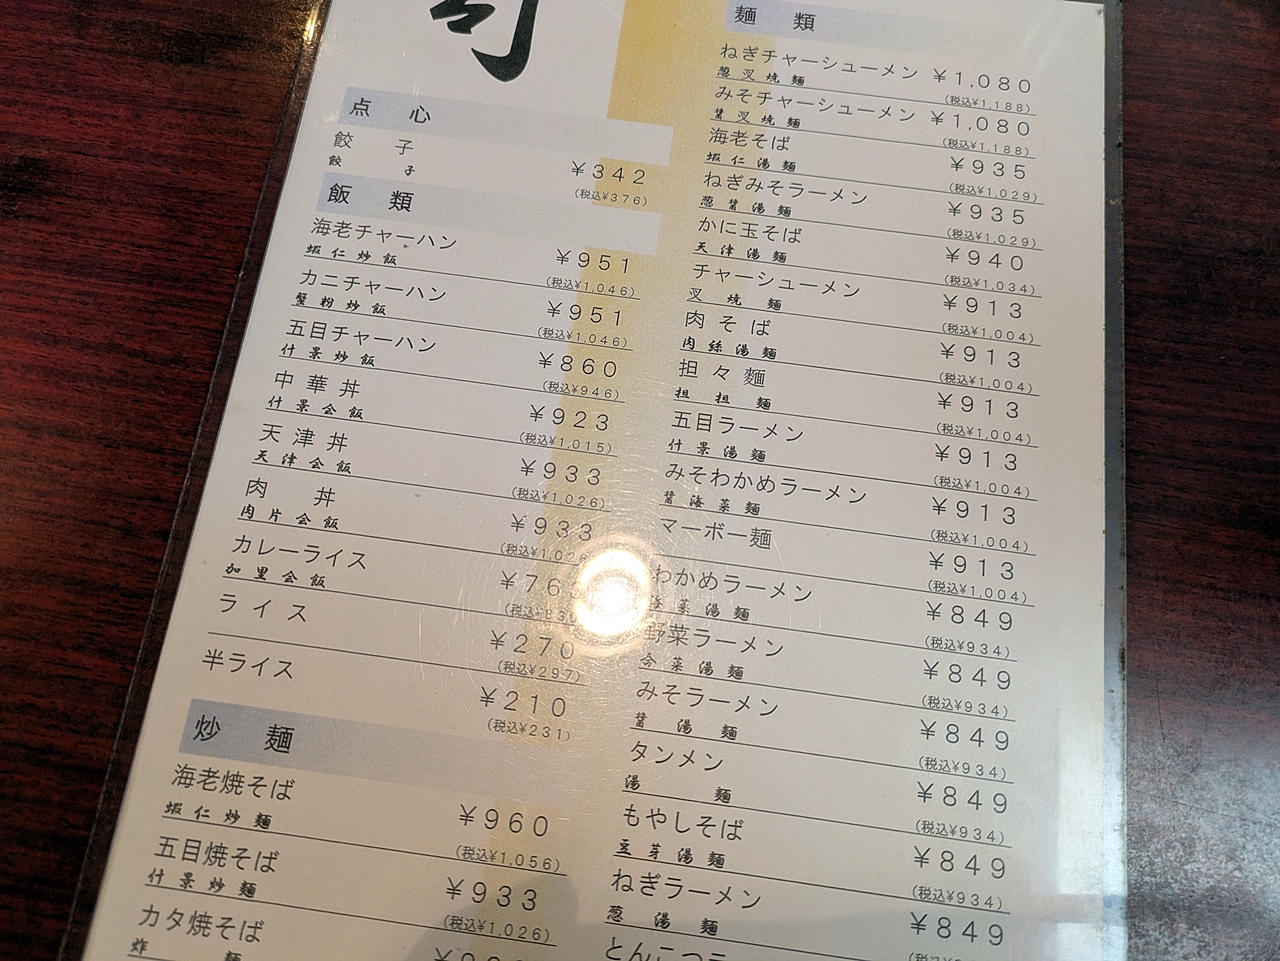 司
点心
餃子
餃子
¥342
(税込¥376)
飯類
海老チャーハン
蝦仁炒飯
¥951
(税込¥1,046)
カニチャーハン
蟹粉炒飯
¥951
(税込¥1,046)
五目チャーハン
什景炒飯
¥860
(税込¥946)
中華丼
什景会飯
¥923
(税込¥1,015)
天津丼
天津会飯
¥933
(税込¥1,026)
肉丼
肉片会飯
¥933
カレーライス
加里会飯
ライス
¥270
(税込¥297)
半ライス
¥210
(税込¥231)
炒麺
海老焼そば
蝦仁炒麺
¥960
(税込¥1,056)
五目焼そば
什景炒麺
¥933
(税込¥1,026)
カタ焼そば
炸麺
麺類
ねぎチャーシューメン ¥1,080
葱叉焼麺
(税込¥1,188)
みそチャーシューメン ¥1,080
醤叉焼麺
(税込¥1,188)
海老そば
蝦仁湯麺
¥935
(税込¥1,029)
ねぎみそラーメン
葱醤湯麺
¥935
(税込¥1,029)
かに玉そば
天津湯麺
¥940
(税込¥1,034)
チャーシューメン
叉焼麺
¥913
(税込¥1,004)
肉そば
肉絲湯麺
¥913
(税込¥1,004)
担々麺
担担麺
¥913
(税込¥1,004)
五目ラーメン
什景湯麺
¥913
(税込¥1,004)
みそわかめラーメン
醤海菜麺
¥913
(税込¥1,004)
マーボー麺
¥913
(税込¥1,004)
わかめラーメン
菜湯麺
¥849
(税込¥934)
野菜ラーメン
合菜湯麺
¥849
(税込¥934)
みそラーメン
醤湯麺
¥849
(税込¥934)
タンメン
湯麺
¥849
(税込¥934)
もやしそば
豆芽湯麺
¥849
(税込¥934)
ねぎラーメン
葱湯麺
¥849
とんこつラ